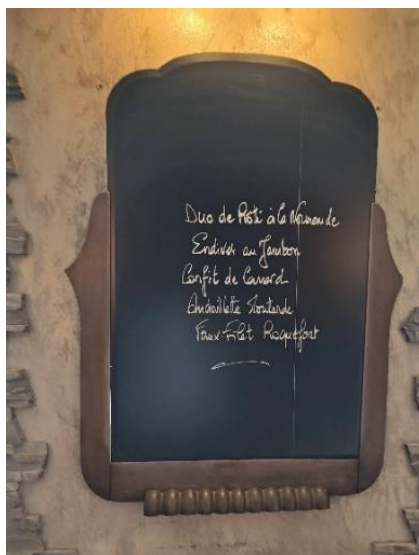 Duo de Rôti à la Normande
Endives au Jambon
Confit de Canard
Andouillette Moutarde
Faux-Filet Roquefort